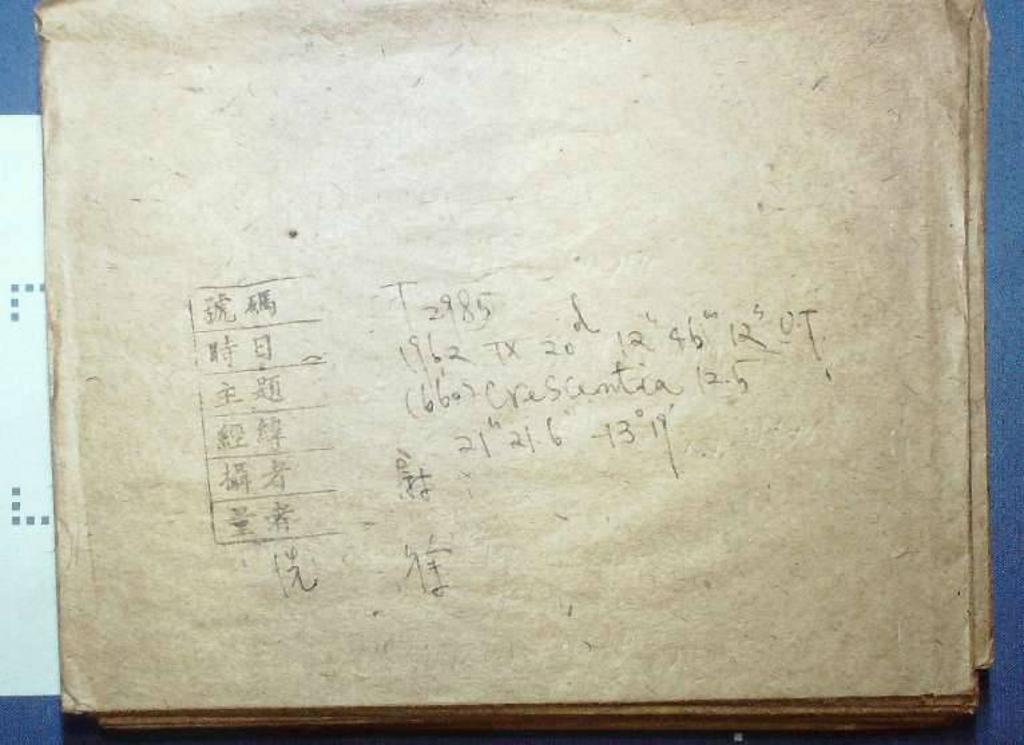 號碼 T 2985
時日 1962 IX 20ᵈ 12ʰ 46ᵐ 12ˢ U.T.
主題 (660) Crescentia 12.5
經緯 21ʰ 21.6ᵐ -13° 19′
攝者
量者
洗 徐